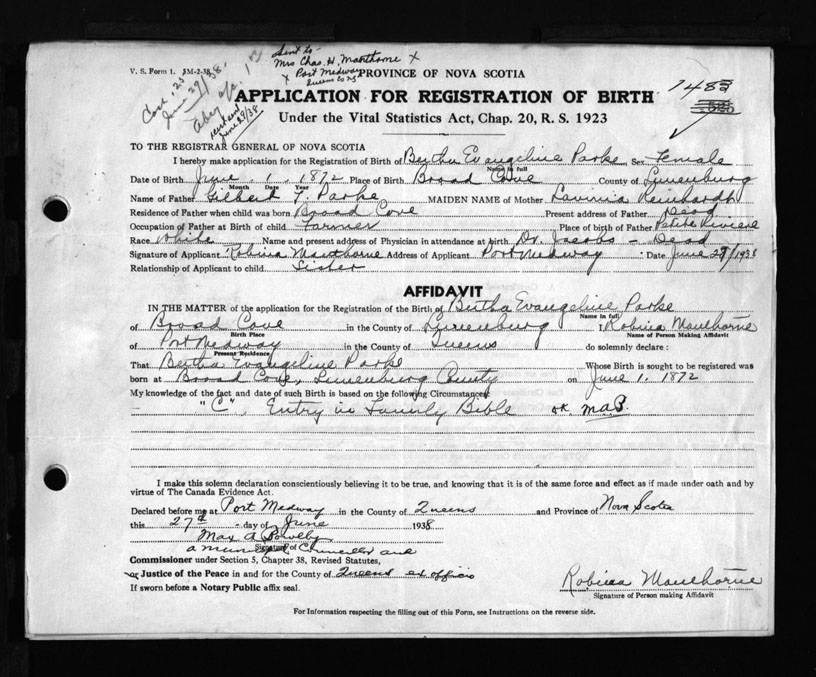 V. S. Form 1. 5M-2-38
Sent to-
Mrs Chas. H. Mawthorne x
x Port Medway
Queens Co NS
PROVINCE OF NOVA SCOTIA
APPLICATION FOR REGISTRATION OF BIRTH
Under the Vital Statistics Act, Chap. 20, R. S. 1923
TO THE REGISTRAR GENERAL OF NOVA SCOTIA
I hereby make application for the Registration of Birth of Bertha Evangeline Parke Sex Female
Name in full
Date of Birth June 1. 1872 Place of Birth Broad Cove County of Lunenburg
Month Date Year
Name of Father Gilbert T. Parke MAIDEN NAME of Mother Lavinia Reinhardt
Residence of Father when child was born Broad Cove Present address of Father Dead
Occupation of Father at Birth of Child Farmer Place of birth of Father Petite Riviere
Race White Name and present address of Physician in attendance at birth Dr. Jacobs - Dead
Signature of Applicant Robina Mawthorne Address of Applicant Port Medway Date June 27/1938
Relationship of Applicant to child Sister
AFFIDAVIT
IN THE MATTER of the application for the Registration of the Birth of Bertha Evangeline Parke
Name in full
of Broad Cove in the County of Lunenburg I, Robina Mawthorne
Birth Place Name of Person Making Affidavit
of Port Medway in the County of Queens do solemnly declare:
Present Residence
That Bertha Evangeline Parke Whose Birth is sought to be registered was
born at Broad Cove, Lunenburg County on June 1. 1872
My knowledge of the fact and date of such Birth is based on the following Circumstances
"C", Entry in Family Bible OK MaB.
I make this solemn declaration conscientiously believing it to be true, and knowing that it is of the same force and effect as if made under oath and by
virtue of The Canada Evidence Act.
Declared before me at Port Medway in the County of Queens and Province of Nova Scotia
this 27th day of June 1938
Max A
Signature of
a Municipal Councillor and
Commissioner under Section 5, Chapter 38, Revised Statutes,
or Justice of the Peace in and for the County of Queens ex officio
If sworn before a Notary Public affix seal.
Robina Mawthorne
Signature of Person making Affidavit
For Information respecting the filling out of this Form, see Instructions on the reverse side.